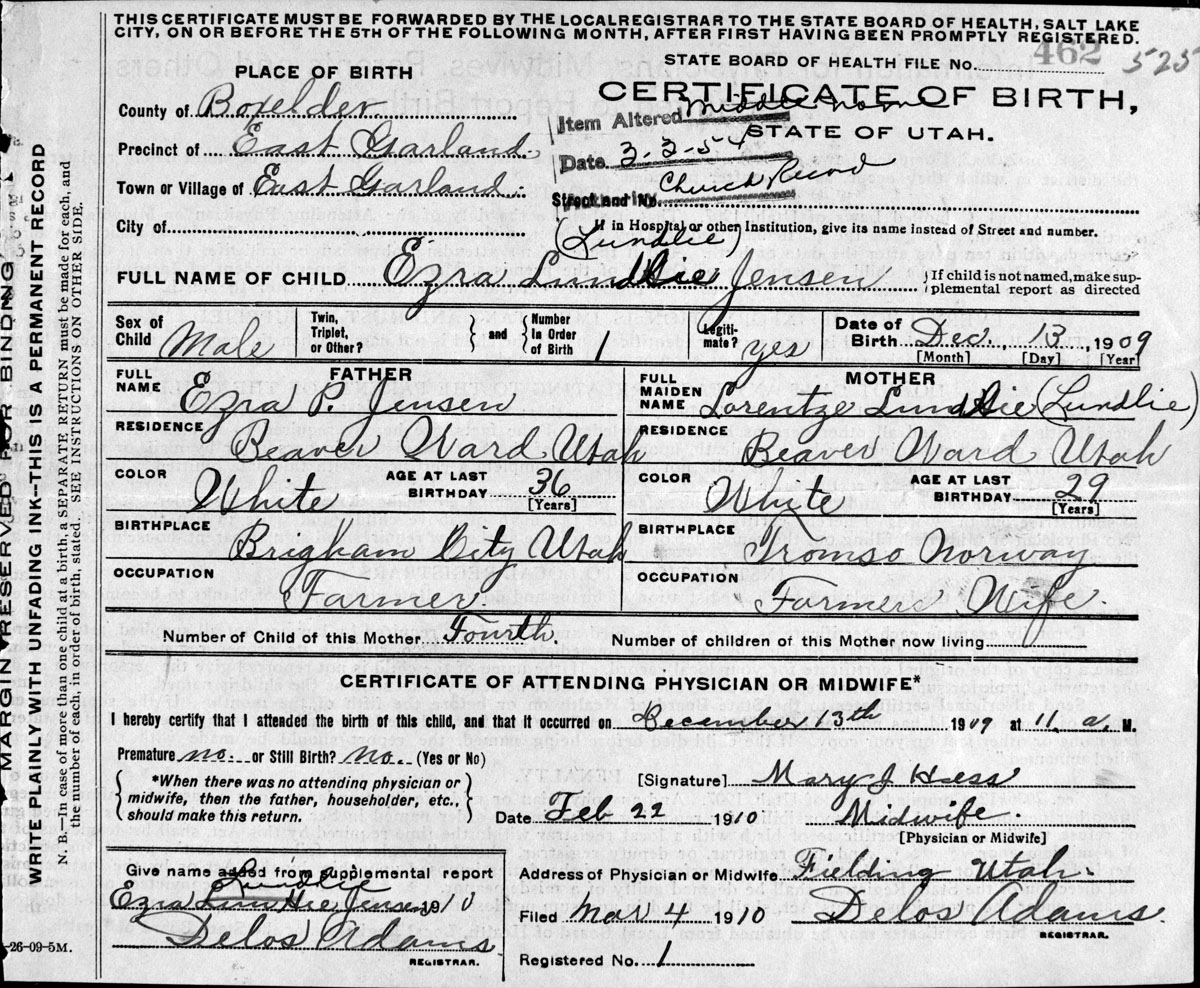 THIS CERTIFICATE MUST BE FORWARDED BY THE LOCAL REGISTRAR TO THE STATE BOARD OF HEALTH, SALT LAKE
CITY, ON OR BEFORE THE 5TH OF THE FOLLOWING MONTH, AFTER FIRST HAVING BEEN PROMPTLY REGISTERED.
STATE BOARD OF HEALTH FILE No. 462 525
PLACE OF BIRTH
CERTIFICATE OF BIRTH,
STATE OF UTAH.
County of Boxelder
Item Altered Middle name
Precinct of East Garland.
Date 3-2-54
Town or Village of East Garland.
Church Record
Street and No.
City of
If in Hospital or other Institution, give its name instead of Street and number.
(Lundlie)
FULL NAME OF CHILD Ezra Lundlie Jensen
If child is not named, make sup-
plemental report as directed
Sex of Child Male
Twin, Triplet, or Other?
and
Number In Order of Birth 1
Legiti-mate? yes
Date of Birth Dec. 13, 1909
[Month] [Day] [Year]
FATHER
FULL NAME Ezra P. Jensen
RESIDENCE Beaver Ward Utah
COLOR White
AGE AT LAST BIRTHDAY 36
[Years]
BIRTHPLACE Brigham City Utah
OCCUPATION Farmer
MOTHER
FULL MAIDEN NAME Lorentze Lundlie (Lundlie)
RESIDENCE Beaver Ward Utah
COLOR White
AGE AT LAST BIRTHDAY 29
[Years]
BIRTHPLACE Tromso Norway
OCCUPATION Farmers Wife.
Number of Child of this Mother Fourth. Number of children of this Mother now living
CERTIFICATE OF ATTENDING PHYSICIAN OR MIDWIFE*
I hereby certify that I attended the birth of this child, and that it occurred on December 13th 1909 at 11, a, M.
Premature no. or Still Birth? No. (Yes or No)
*When there was no attending physician or
midwife, then the father, householder, etc.,
should make this return.
[Signature] Mary J Hess
Date Feb 22 1910 Midwife.
[Physician or Midwife]
Give name added from supplemental report
Lundlie
Ezra Jensen 1910
Delos Adams
REGISTRAR.
Address of Physician or Midwife Fielding Utah.
Filed Mar 4 1910 Delos Adams.
REGISTRAR.
Registered No. 1
-26-09-5M.
MARGIN RESERVED FOR BINDING
WRITE PLAINLY WITH UNFADING INK—THIS IS A PERMANENT RECORD
N. B.—In case of more than one child at a birth, a SEPARATE RETURN must be made for each, and
the number of each, in order of birth, stated. SEE INSTRUCTIONS ON OTHER SIDE.